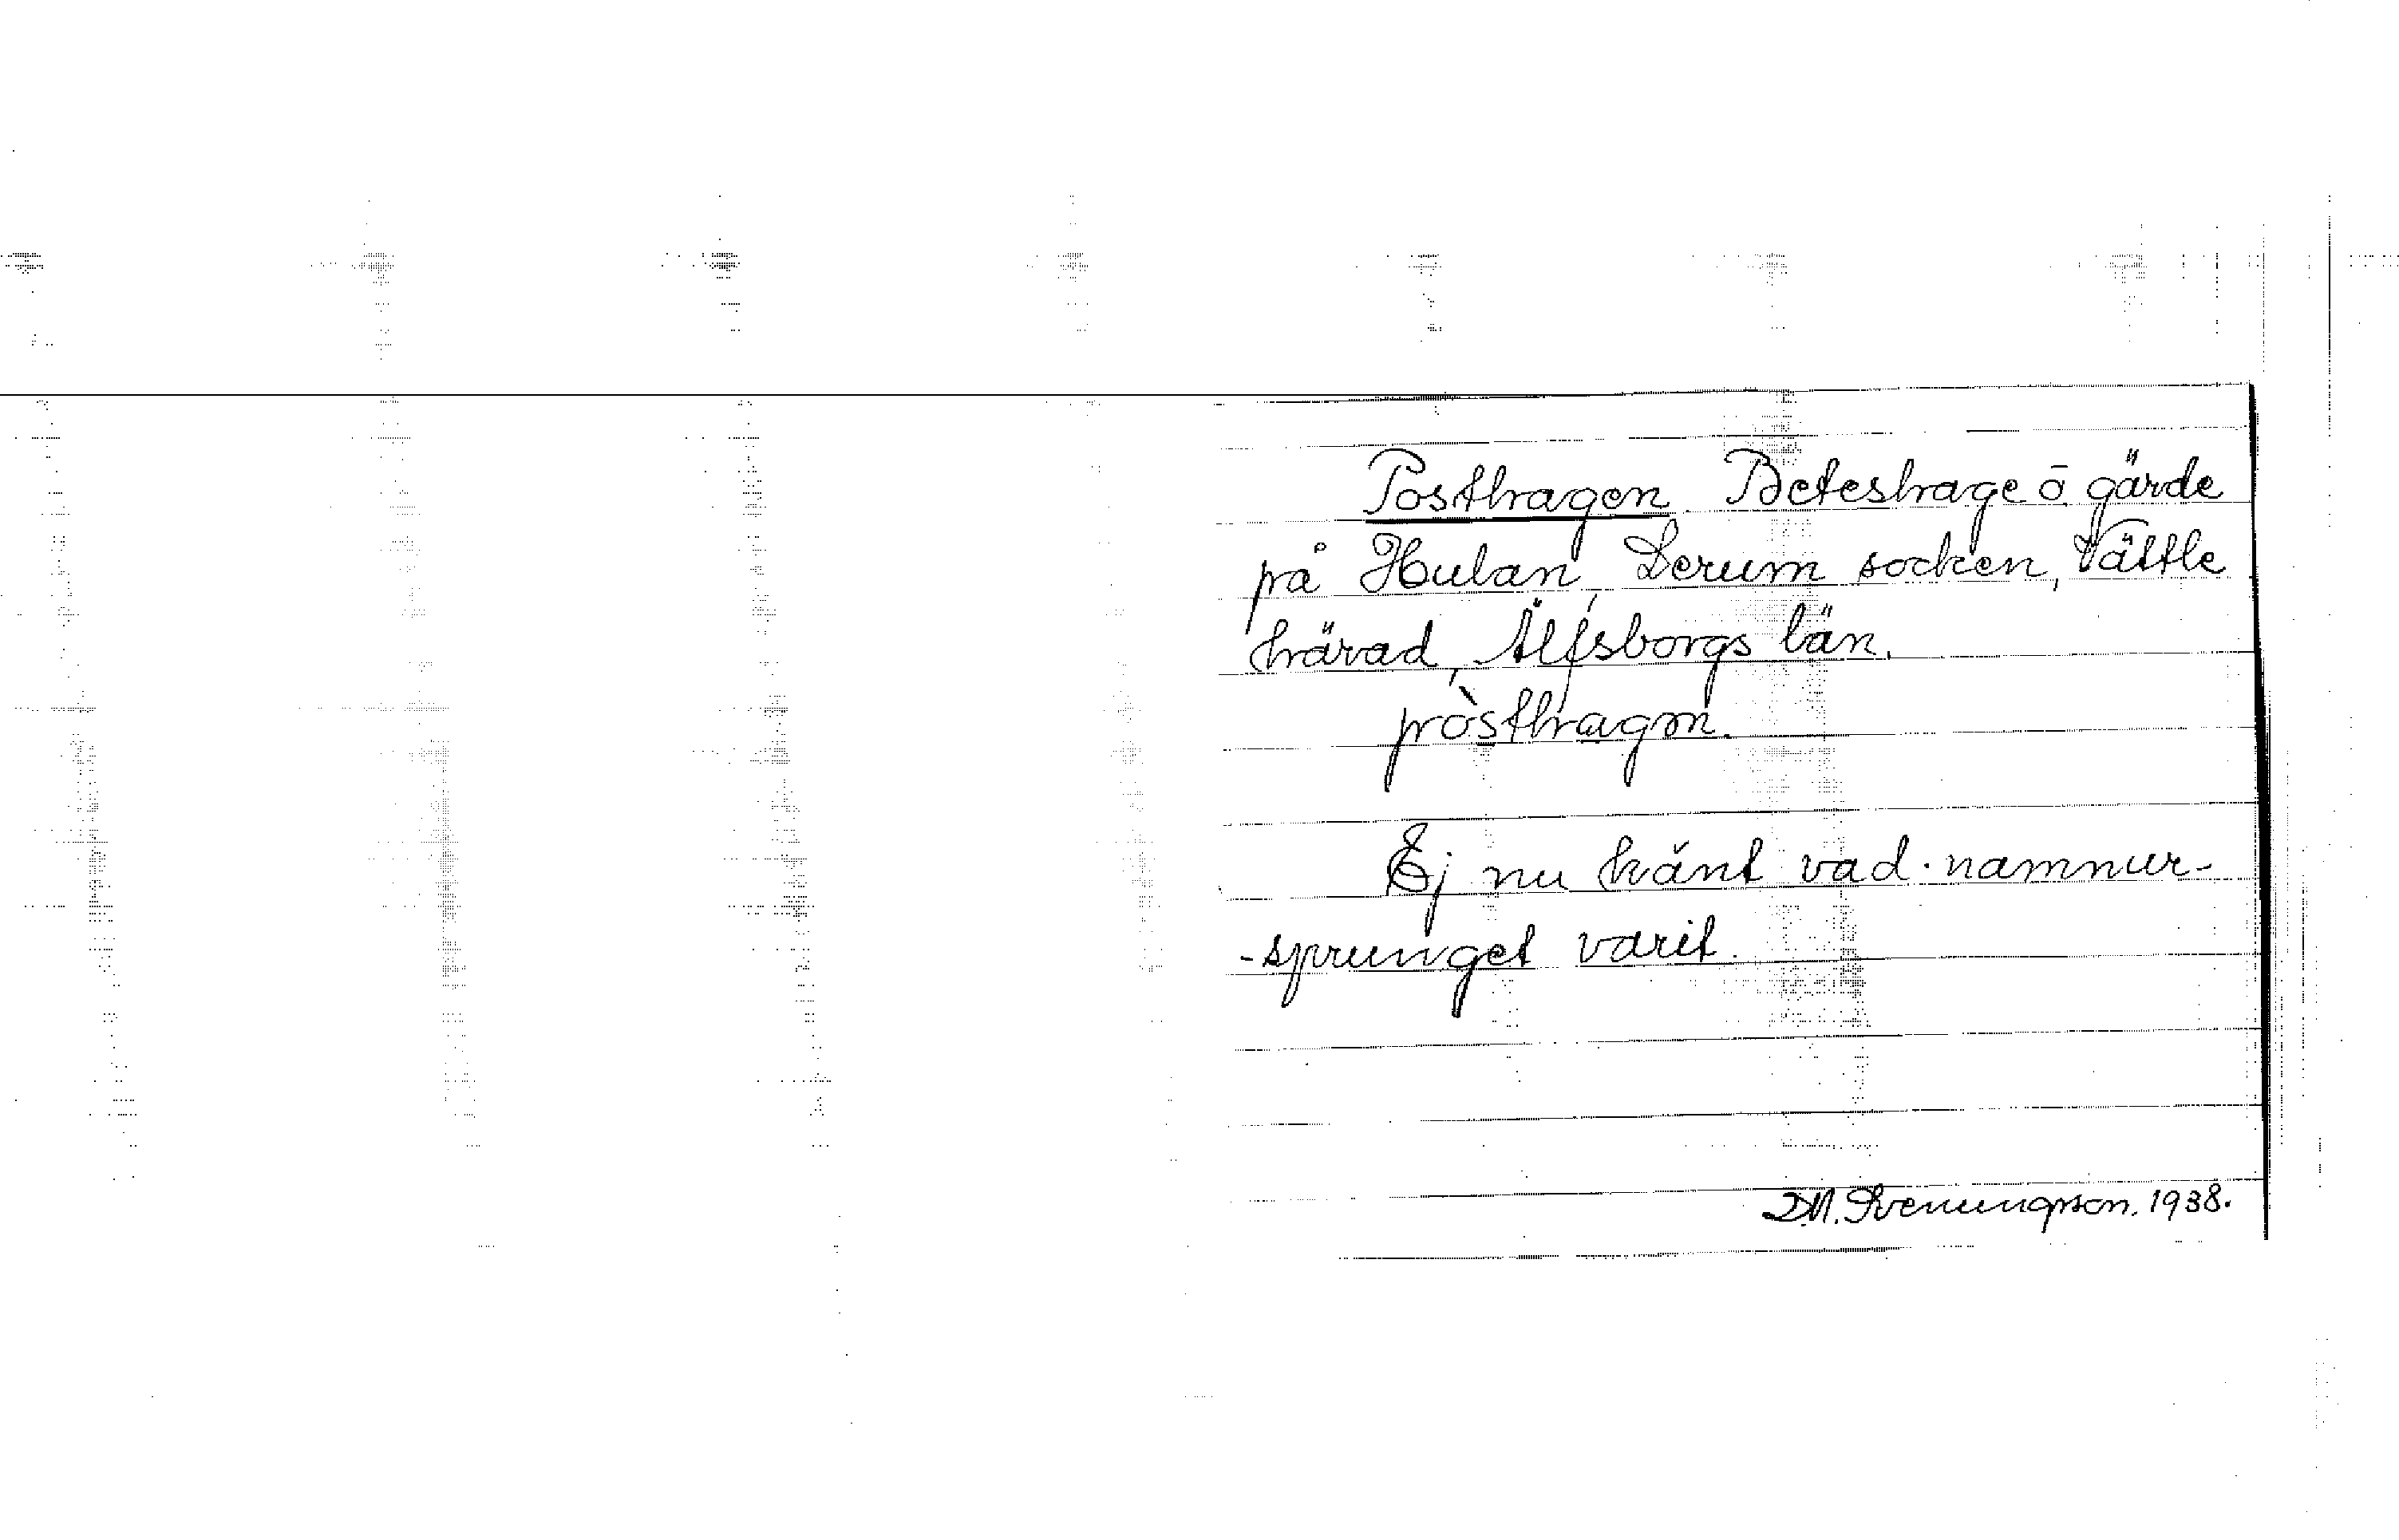 Posthagen. Beteshage ō gärde
på Hulan, Lerum socken, Vättle
härad, Älfsborgs län.
pòsthagən.
Ej nu känt vad namnur-
-sprunget varit.
D.M. Svenungsson. 1938.